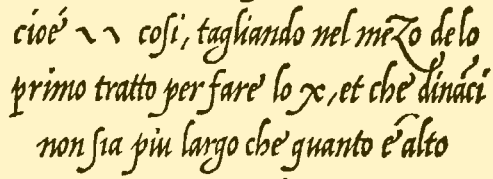 cioé ~ ~ cosi, tagliando nel mezo de lo
primo tratto per fare lo x, et che dinãci
non sia piu largo che quanto e alto